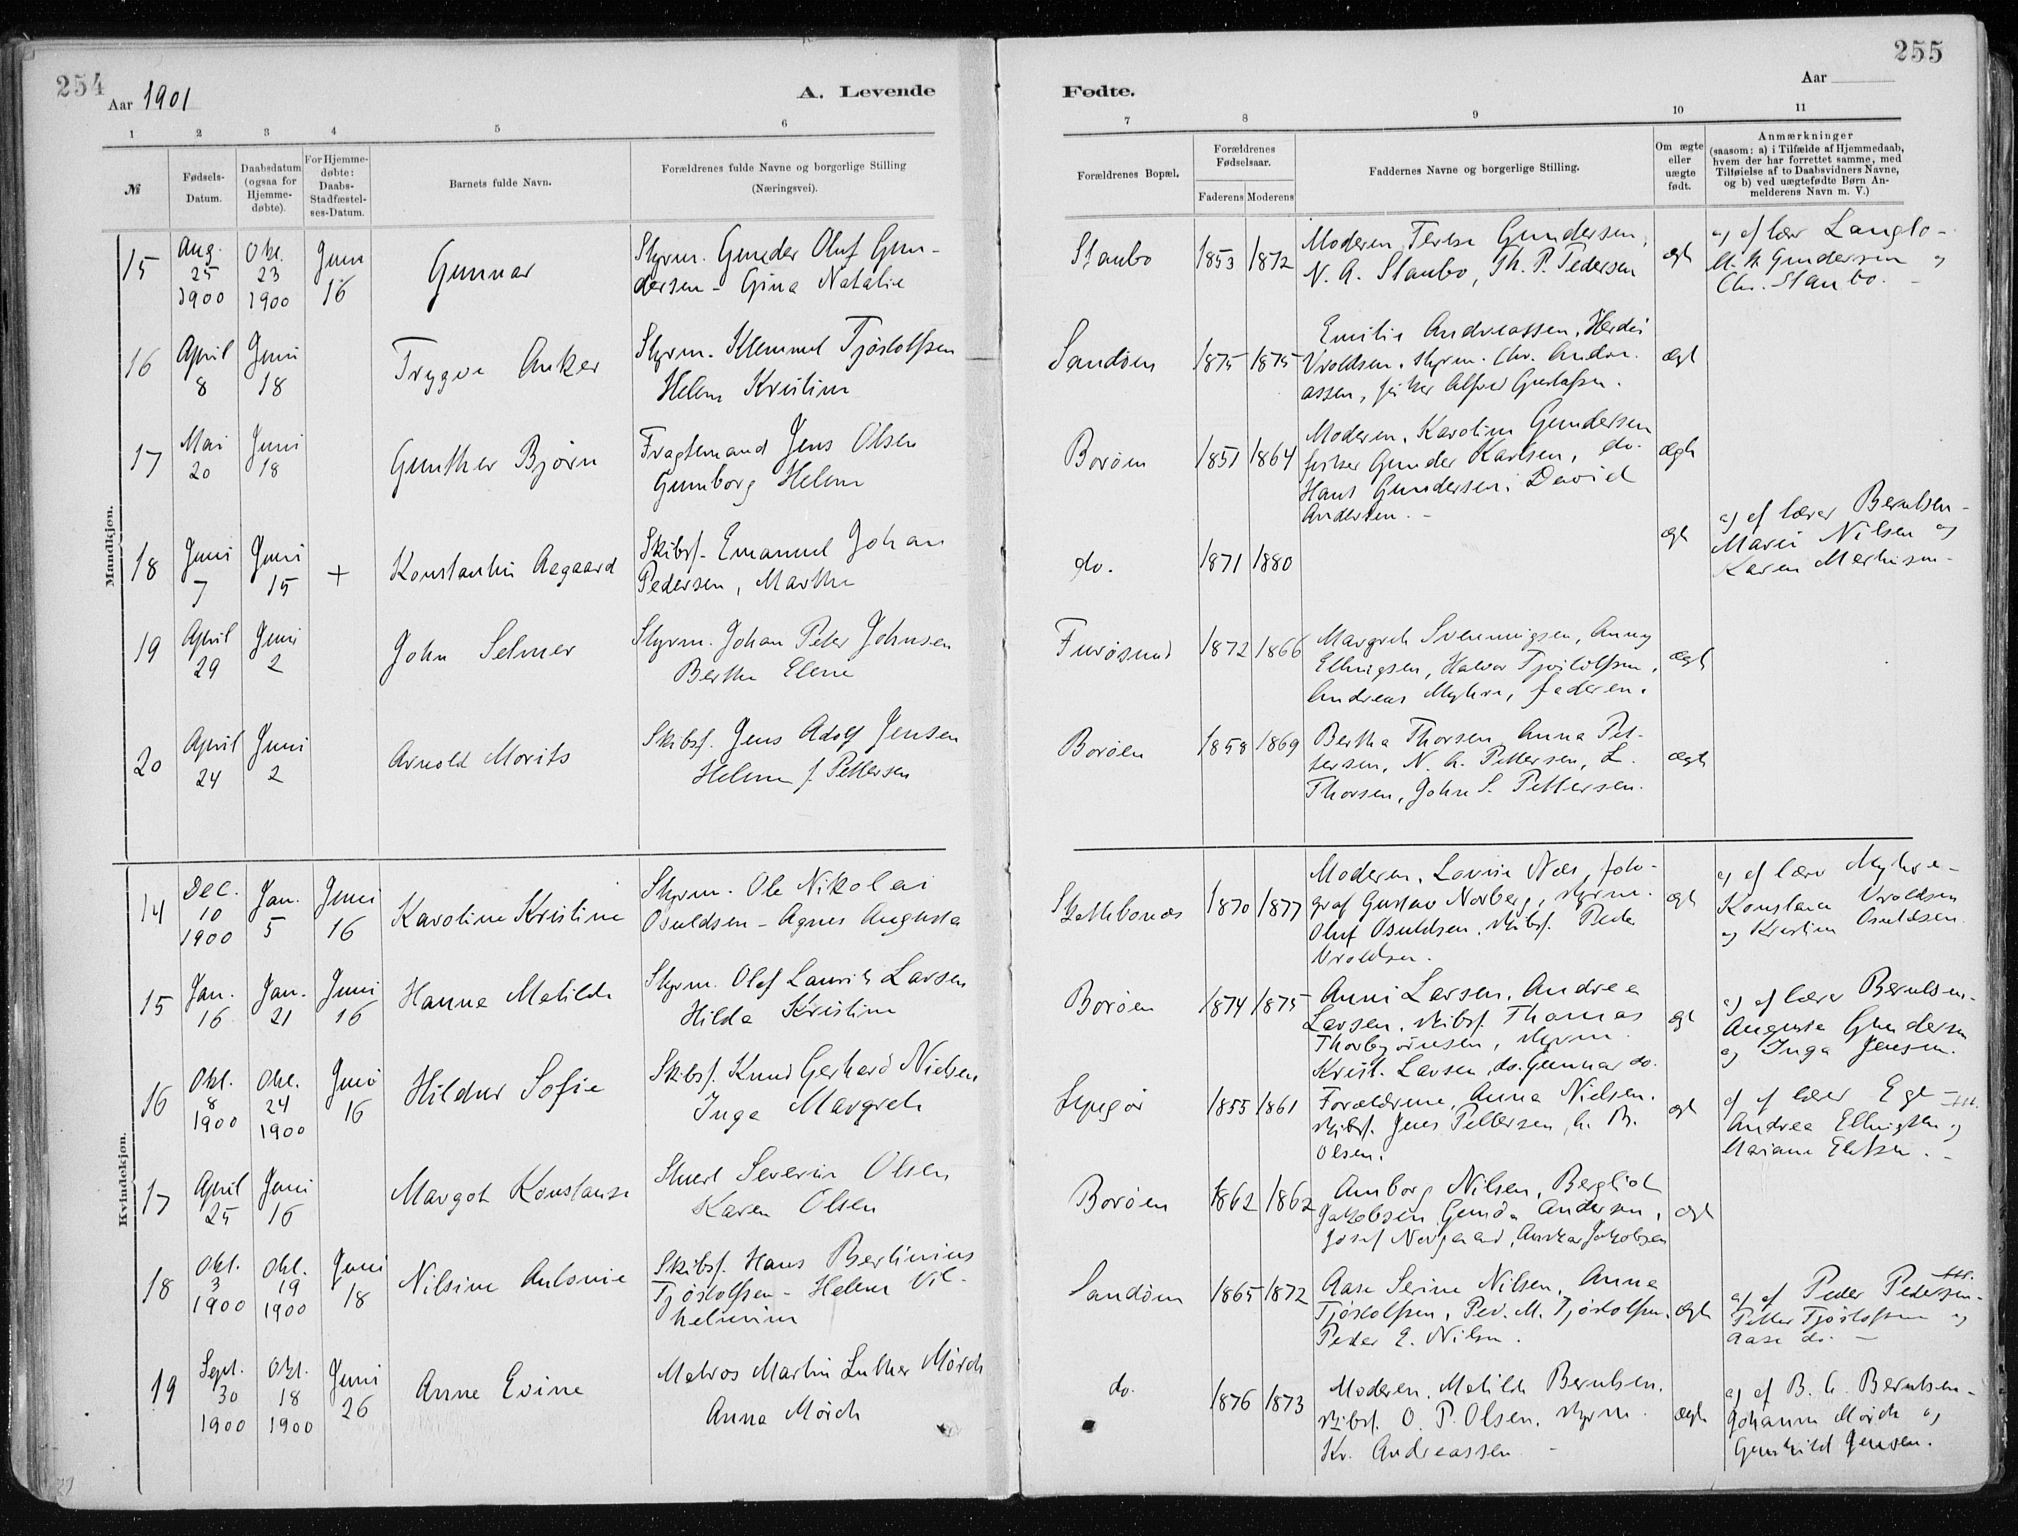 254
Aar 1901
A. Levende
1 2 3 4 5 6
№
Fødsels-Datum.
Daabsdatum (ogsaa for Hjemme-døbte).
For Hjemme-døbte: Daabs-Stadfæstel-ses-Datum.
Barnets fulde Navn.
Forældrenes fulde Navne og borgerlige Stilling
(Næringsvei).
Mandkjøn.
15 Aug. 25 1900 Okt. 23 1900 Juni 16 Gunnar
Styrm. Gunder Oluf Gun-
dersen - Gina Natalie
16 April 8 Juni 18 Trygve Anker
Styrm. Klemmet Tjøstolfsen
Helene Kristine
17 Mai 20 Juni 18 Gunther Bjørn
Fragtemand Jens Olsen
Gunborg Helene
18 Juni 7 Juni 15 + Konstantin Aagaard
Skibsf. Emanuel Johan
Pedersen, Marthe
19 April 29 Juni 2 John Selmer
Styrm. Johan Peter Johnsen
Berthe Elene
20 April 24 Juni 2 Arnold Morits
Skibsf. Jens Adolf Jensen
Helene f. Pettersen
Kvindekjøn.
14 Dec. 10 1900 Jan. 5 Juni 16 Karoline Kristine
Styrm. Ole Nikolai
Osuldsen - Agnes Augusta
15 Jan. 16 Jan. 21 Juni 16 Hanna Matilde
Styrm. Olaf Laurits Larsen
Hilda Kristine
16 Okt. 8 1900 Okt. 24 1900 Juni 16 Hildur Sofie
Skibsf. Knud Gerhard Nielsen
Inga Margrete
17 April 25 Juni 16 Margot Konstanse
Severin Olsen
Karen Olsen
18 Okt. 3 1900 Okt. 19 1900 Juni 18 Nilsine Antonie
Skibsf. Hans Bertinius
Tjøstolfsen - Helene Vil-
helmine
19 Sept. 30 1900 Okt. 18 1900 Juni 26 Anne Evine
Matros Martin Luther Mørch
Anna Mørch
255
Aar
Fødte.
7 8 9 10 11
Forældrenes Bopæl.
Forældrenes Fødselsaar.
Faderens Moderens
Faddernes Navne og borgerlige Stilling.
Om ægte eller uægte født.
Anmærkninger
(saasom: a) i Tilfælde af Hjemmedaab,
hvem der har forrettet samme, med
Tilføielse af to Daabsvidners Navne,
og b) ved uægtefødte Børn An-
melderens Navn m. V.)
Staubo 1853 1872
Moderen, Terese Gundersen,
N. A. Staubo, Th. P. Pedersen
ægt
a) af lær. Langlo -
Gundersen og
Chr. Staubo. -
Sandøen 1875 1875
Emilie Andreassen,
Vroldsen, styrm. Chr. Andre-
assen, fisker Alfred Gustafsen.
ægt
Borøen 1851 1864
Moderen, Karoline Gundersen
fisker Gunder Karlsen, do.
Hans Gundersen, David
Andersen. -
ægte
do. 1871 1880
ægt
a) af lærer Berntsen -
Marie Nilsen og
Karen
Furøsund 1872 1866
Margrete Svenningsen, Anny
Ellingsen, Halvor Tjøstolfsen,
Andreas Myhre, faderen.
ægt
Borøen 1858 1869
Bertha Thorsen, Anna Pet-
tersen, N. A. Pettersen, L.
Thorsen, John S. Pettersen.
ægte
1870 1877
Moderen, Lovise Næs, foto-
graf Gustav Norberg, styrm.
Oluf Osuldsen, skibsf. Peder
Vroldsen.
ægt
a) af lærer Myhre -
Konstanse Vroldsen
og Kristine Osuldsen
Borøen 1874 1875
Anni Larsen, Andrea
Larsen, skibsf. Thomas
Thorbjørnsen, styrm.
Krist. Larsen, do. Gunnar do.
ægt
a) af lærer Berntsen -
Augusta Gundersen
og Inga Jensen.
1855 1861
Forældrene, Anna Nielsen,
skibsf. Jens Pettersen,
Olsen.
ægt
a) af lærer
Andrea Ellingsen og
Mariane
Borøen 1862 1862
Amborg Nilsen, Bergliot
Jakobsen, Andersen,
Josef Norgaard, Jakobsen
ægt
Sandøen 1865 1872
Aase Serine Nilsen, Anne
Tjøstolfsen, Ped. M. Tjøstolfsen,
Peder E. Nilsen.
ægte
a) af Peder Pedersen -
Petter Tjøstolfsen og
Aase do. -
do. 1876 1873
Moderen, Matilde Berntsen,
skibsf. O. P. Olsen, styrm.
Kr. Andreassen -
ægte
a) af B. A. Berntsen -
Johanne Mørch og
Gunhild Jensen.